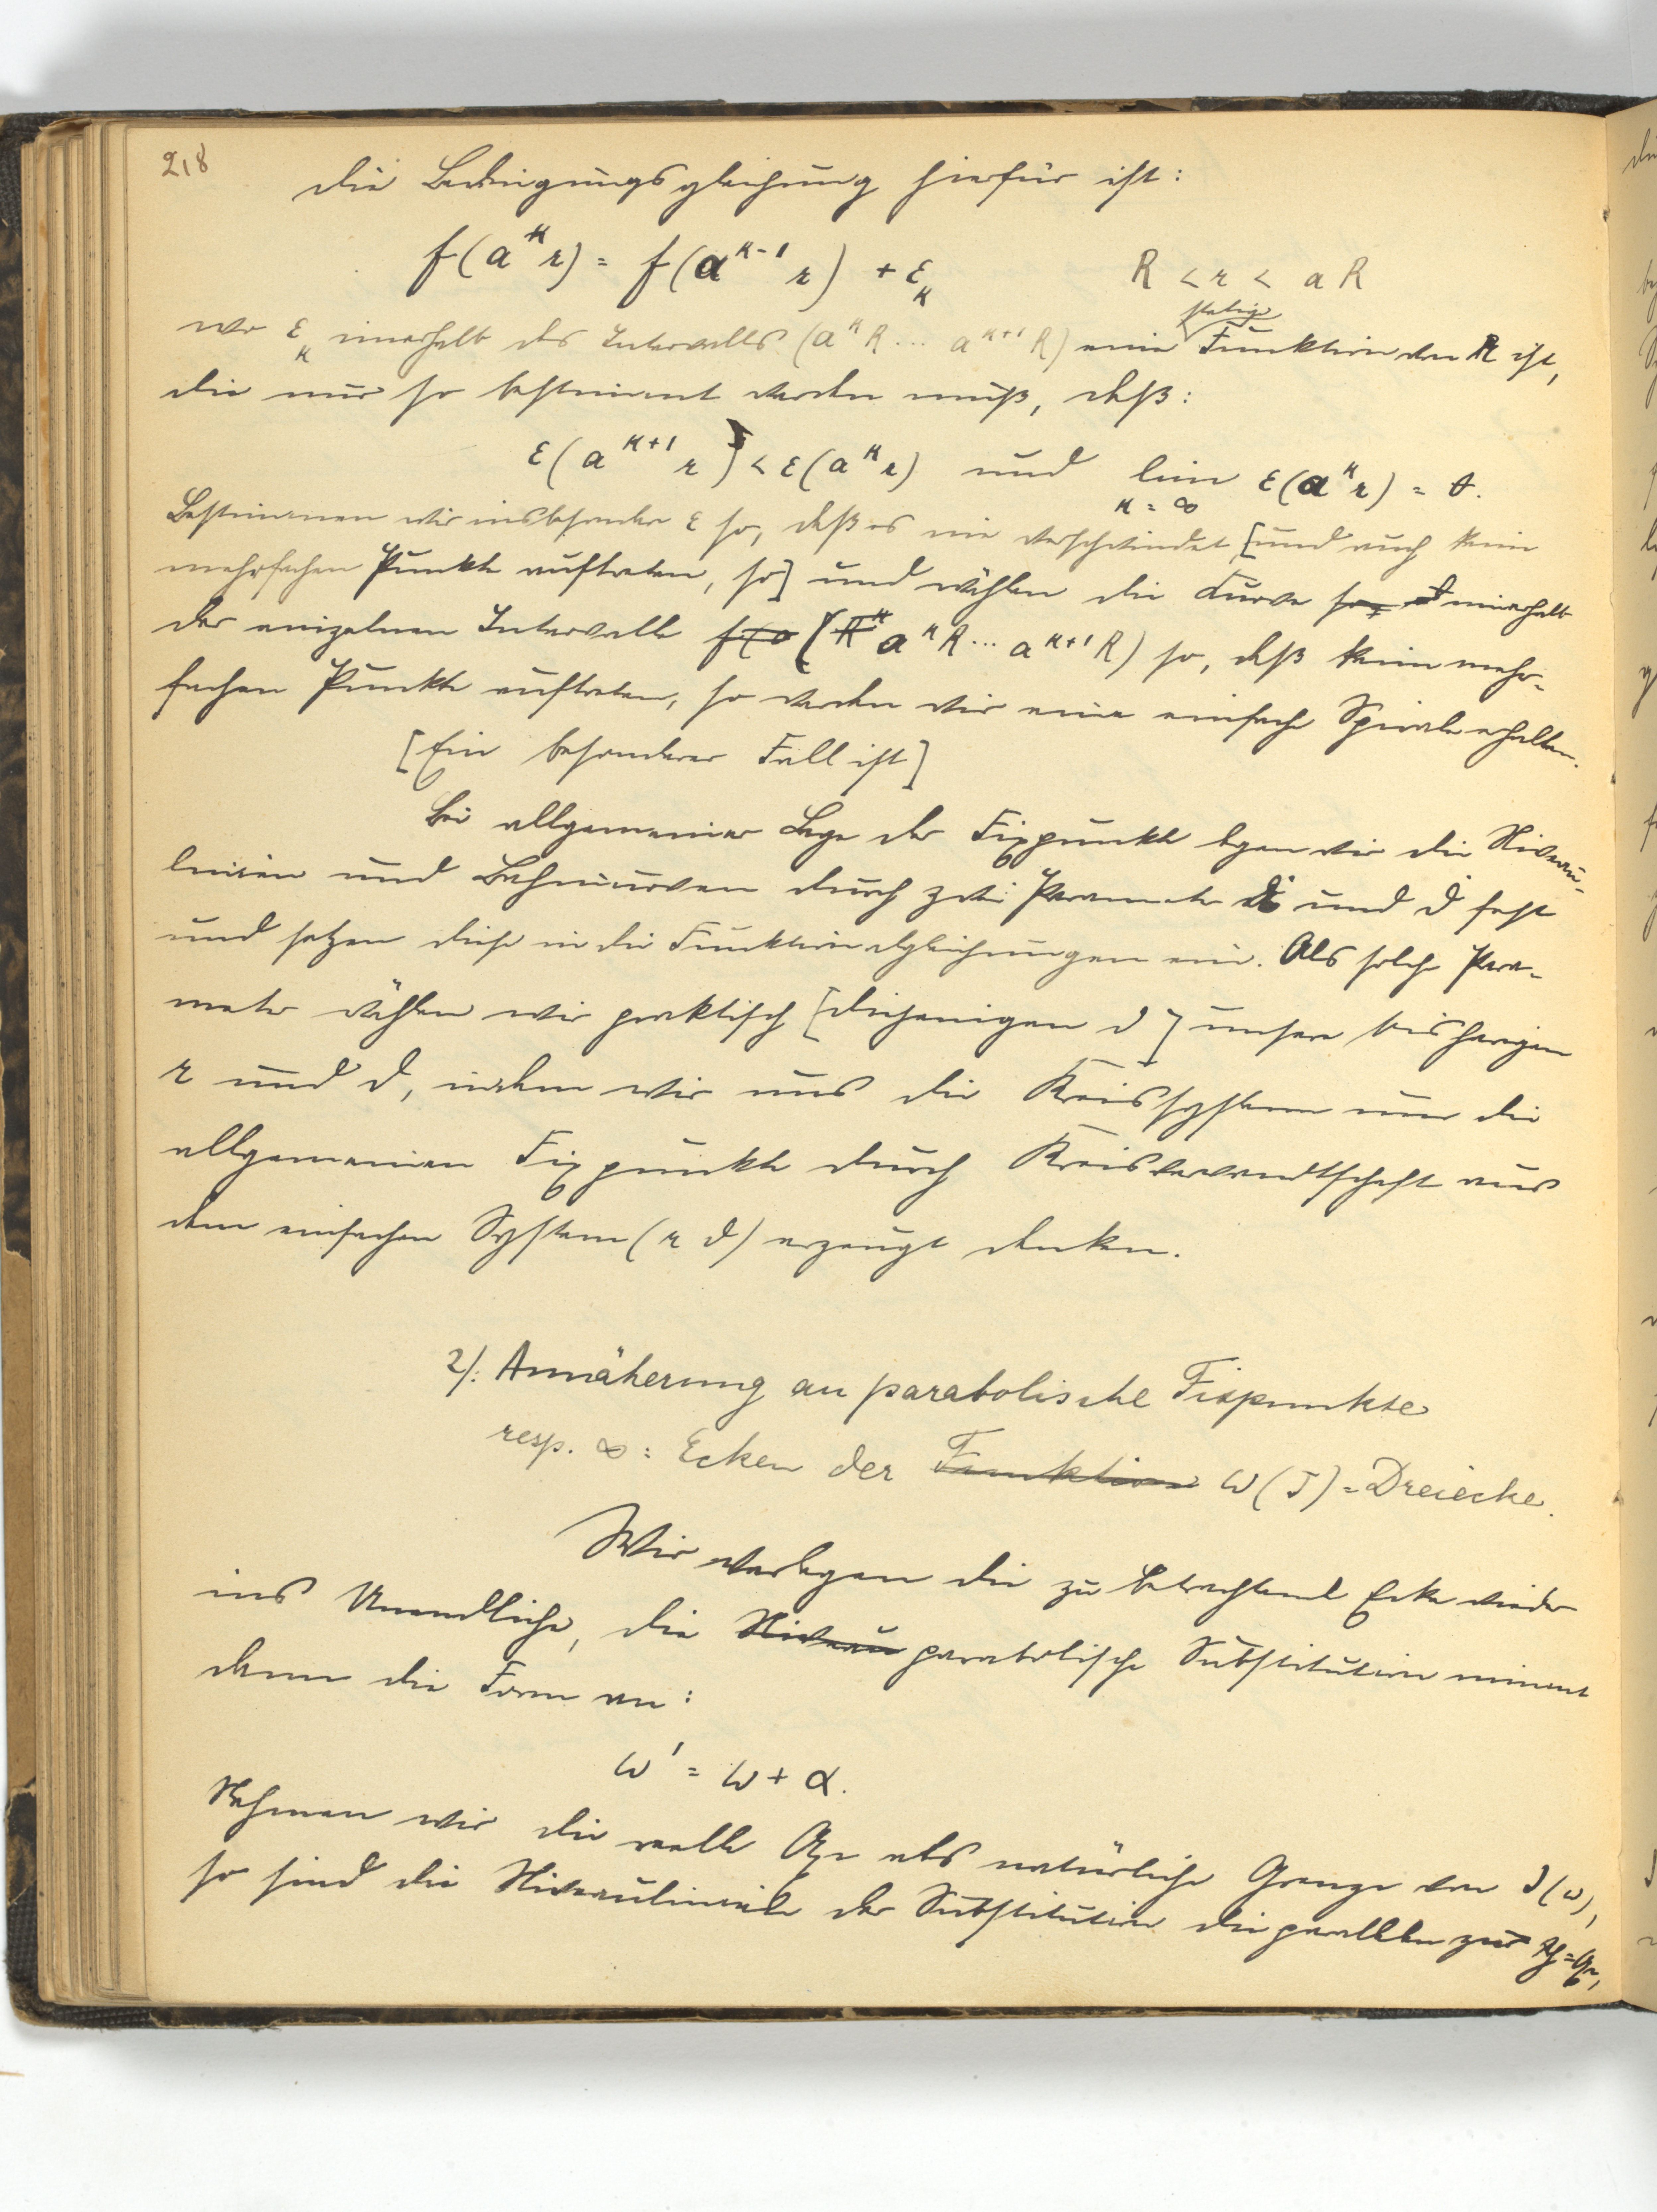 218
die Bedingungsgleichung hierfür ist:
f(a^κ r) = f(a^{κ-1} r) + ε_κ R < r < aR
stetige
wo ε_κ innerhalb des Intervalls (a^κ R ... a^{κ+1} R) eine Funktion von R ist,
die nur so bestimmt werden muß, daß:
ε(a^{κ+1} r) < ε(a^κ r) und lim ε(a^κ r) = 0.
κ = ∞
Bestimmen wir insbesondere ε so, daß es nie verschwindet [und auch keine
mehrfachen Punkte auftreten, so] und wählen die Kurve so, innerhalb
der einzelnen Intervalle (a^κ R ... a^{κ+1} R) so, daß keine mehr-
fachen Punkte auftreten, so werden wir eine einfache Spirale erhalten.
[Ein besonderer Fall ist]
Bei allgemeiner Lage der Fixpunkte legen wir die Niveau-
linien und Bahnkurven durch zwei Parameter und ϑ fest
und setzen diese in die Funktionalgleichungen ein. Als solche Para-
meter wählen wir praktisch [diejenigen ϑ] unsere bisherigen
r und ϑ, indem wir uns die Kreissysteme um die
allgemeinen Fixpunkte durch Kreisverwandtschaft aus
dem einfachen System (r ϑ) erzeugt denken.
2/: Annäherung an parabolische Fixpunkte
resp. ∞ = Ecken der Funktion ω(J) = Dreiecke.
Wir verlegen die zu betrachtende Ecke wieder
ins Unendliche, die Niveau parabolische Substitution nimmt
dann die Form an:
ω' = ω + α.
Nehmen wir die reelle Axe als natürliche Grenze von J(ω),
so sind die Niveaulinien der Substitution die parallelen zur